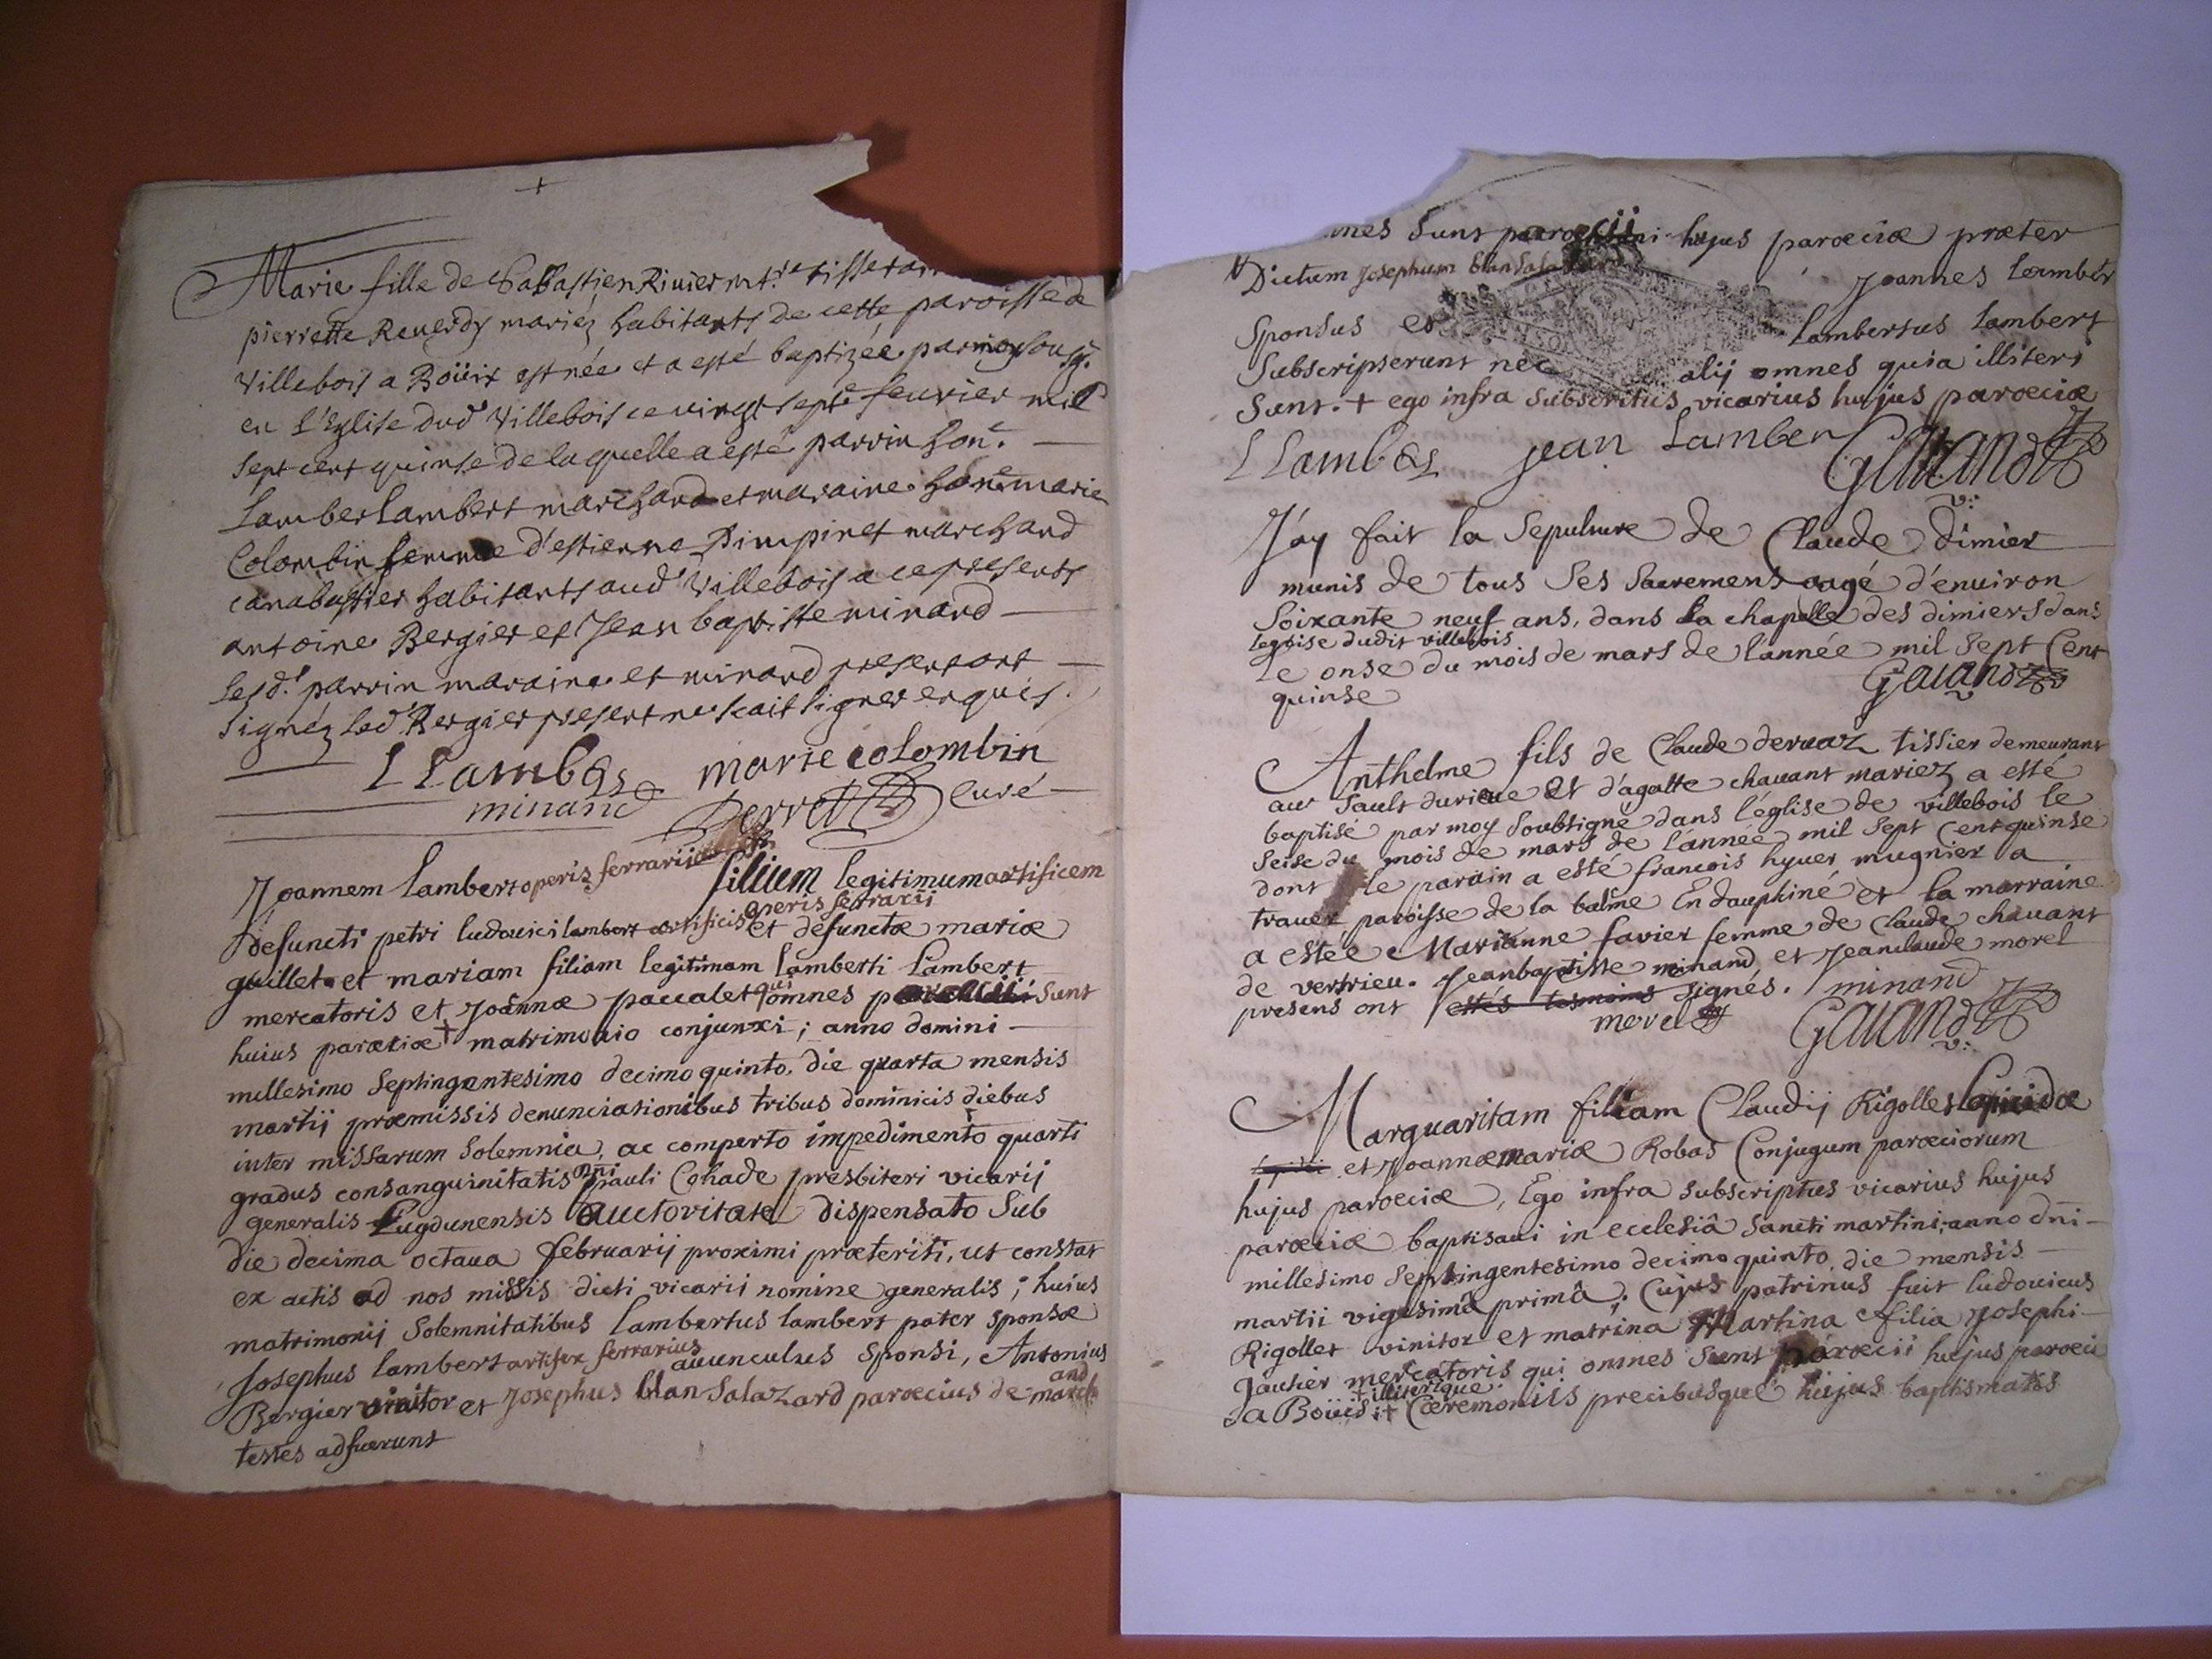 Marie fille de Sabastien Riuier mtre tissera
pierrette Reuerdy mariéz habitants de cette paroisse de
Villebois a Boüix est née et a esté baptizée par moy sousg.
en l'Eglise dud Villebois ce vingt sept feurier mil
sept cent quinse de laquelle a esté parrin hon.
Lamber Lambert marchand et maraine hone. marie
Colombin femme d'estienne Pimpinet marchand
cárabassier habitants aud Villebois a ce presents
antoine Bergier et Jean baptiste minand
lesd. parrin maraine et minand present ont
signéz led Bergier present ne scait signer enquis.
L Lambert marie colombin
minand Perret Curé
Joannem Lambert operis ferrarij filium legitimum artificem
operis ferrarii
defuncti petri ludouici lambert artificis et defunctæ mariæ
guillet et mariam filiam legitimam Lamberti Lambert
mercatoris et Joannæ paccalet qui omnes paroecii sunt
huius paroeciæ + matrimonio conjunxi; anno domini
millesimo septingentesimo decimo quinto, die quarta mensis
martij præmissis denunciationibus tribus dominicis diebus
inter missarum solemnia, ac comperto impedimento quarti
gradus consanguinitatis Dni pauli Cohade presbiteri vicarij
generalis Lugdunensis auctoritate dispensato sub
die decima octaua februarij proximi præteriti, ut constat
ex actis ad nos missis dicti vicarii nomine generalis; huius
matrimonij solemnitatibus Lambertus lambert pater sponsæ
Josephus lambert artifex ferrarius auunculus sponsi, Antonius
Bergier vinitor et Josephus blan Salazard paroecius de march
and
testes adfuerunt
mnes sunt paroecii hujus paroeciæ præter
Dictum Josephum blan Sala
Joannes lambert
sponsus et Lambertus lambert
subscripserunt nec alij omnes quia illiteri
sunt. + ego infra subscritus vicarius hujus paroeciæ
L Lambert jean Lamber Gauand
v:
J'ay fait la sepulture de Claude Dimier
munis de tous ses sacremens aagé d'énuiron
soixante neuf ans, dans la chapelle des dimiers dans
legoise dudit villebois
le onse du mois de mars de l'année mil sept Cent
quinse Gauand
v
Anthelme fils de Claude deruaz tissier demeurant
au Sault durieue et d'ágatte chauant mariez a esté
baptisé par moy soubsigné dans l'église de villebois le
seise du mois de mars de l'année mil sept Cent quinse
dont le parain a esté francois hyuer mugnier a
trauer paroisse de la balme En dauphiné et la marraine
a estée Marianne favier femme de Claude chauant
de vertrieu. Jeanbaptiste minand et Jeanclaude morel
presens ont estés tesmoins signés. minand
morel Gauand
v:
Marguaritam filiam Claudij Rigollet Lapicidæ
et Joannæ mariæ Robas Conjugum paroeciorum
hujus paroeciæ, Ego infra subscriptus vicarius hujus
paroeciæ baptisaui in ecclesiâ sancti martini, anno dni
millesimo septingentesimo decimo quinto, die mensis
martii vigesimâ primâ; Cujus patrinus fuit ludouicus
Rigollet vinitor et matrina Martina filia Josephi
Gautier mercatoris qui omnes sunt paroecii hujus paroeci
+ illiterique.
a Boüis :+ Cæremoniis precibusque hujus baptismatis